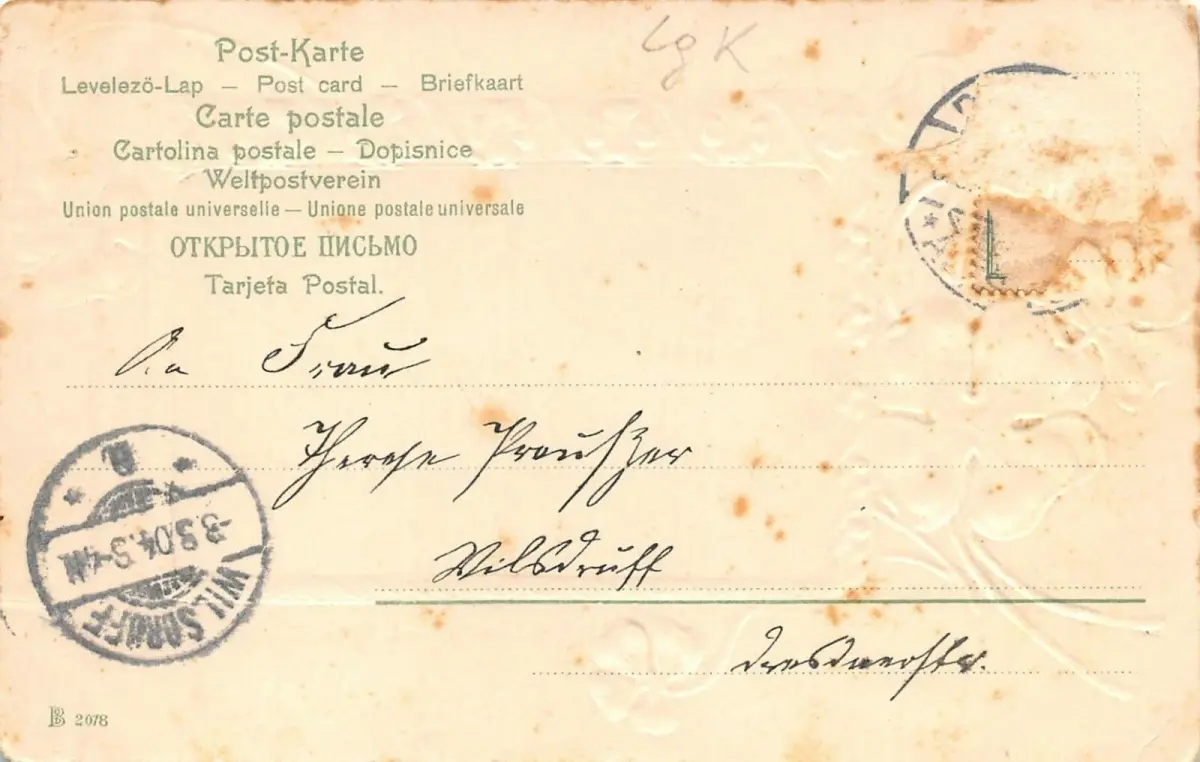 Lg K
Post-Karte
Levelezö-Lap – Post card – Briefkaart
Carte postale
Cartolina postale – Dopisnice
Weltpostverein
Union postale universelle – Unione postale universale
ОТКРЫТОЕ ПИСЬМО
Tarjeta Postal.
An Frau
Therese
Wilsdruff
Dresdnerstr.
WILSDRUFF
B 2078